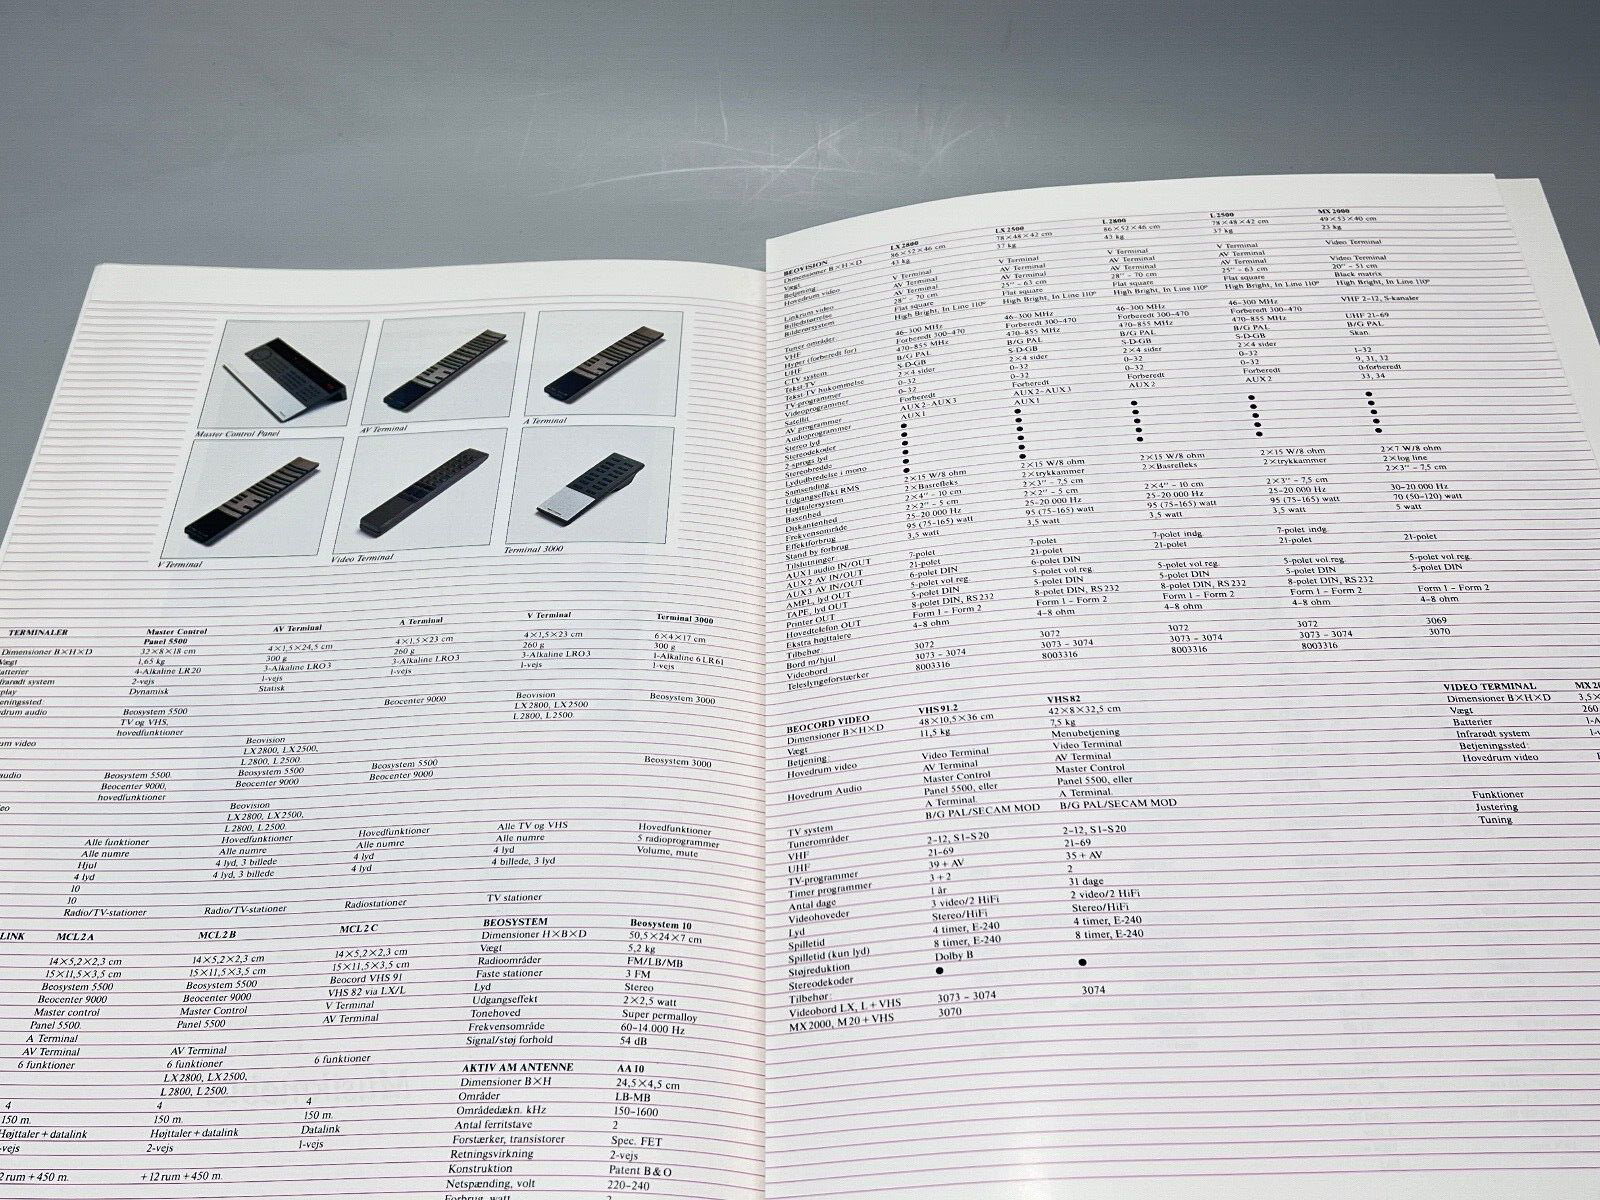 Master Control Panel
AV Terminal
A Terminal
V Terminal
Video Terminal
Terminal 3000
TERMINALER Master Control AV Terminal A Terminal V Terminal Terminal 3000
Panel 5500
Dimensioner B×H×D 32×8×18 cm 4×1,5×24,5 cm 4×1,5×23 cm 4×1,5×23 cm 6×4×17 cm
Vægt 1,65 kg 300 g 260 g 260 g 300 g
atterier 4-Alkaline LR20 3-Alkaline LRO3 3-Alkaline LRO3 3-Alkaline LRO3 1-Alkaline 6LR61
frarødt system 2-vejs 1-vejs 1-vejs 1-vejs 1-vejs
play Dynamisk Statisk
jeningssted:
edrum audio Beosystem 5500 Beocenter 9000 Beovision Beosystem 3000
TV og VHS, LX2800, LX2500
hovedfunktioner L2800, L2500.
um video Beovision
LX2800, LX2500,
L2800, L2500.
audio Beosystem 5500 Beosystem 5500 Beosystem 5500 Beosystem 3000
Beocenter 9000, Beocenter 9000 Beocenter 9000
hovedfunktioner
eo Beovision
LX2800, LX2500,
L2800, L2500.
Alle funktioner Hovedfunktioner Hovedfunktioner Alle TV og VHS Hovedfunktioner
Alle numre Alle numre Alle numre Alle numre 5 radioprogrammer
Hjul 4 lyd, 3 billede 4 lyd 4 lyd Volume, mute
4 lyd 4 lyd, 3 billede 4 lyd 4 billede, 3 lyd
10
10
Radio/TV-stationer Radio/TV-stationer Radiostationer TV stationer
LINK MCL2A MCL2B MCL2C
14×5,2×2,3 cm 14×5,2×2,3 cm 14×5,2×2,3 cm
15×11,5×3,5 cm 15×11,5×3,5 cm 15×11,5×3,5 cm
Beosystem 5500 Beosystem 5500 Beocord VHS 91
Beocenter 9000 Beocenter 9000 VHS 82 via LX/L
Master control Master Control V Terminal
Panel 5500. Panel 5500 AV Terminal
A Terminal
AV Terminal AV Terminal
6 funktioner 6 funktioner 6 funktioner
LX2800, LX2500,
L2800, L2500.
4 4 4
150 m. 150 m. 150 m.
Højttaler + datalink Højttaler + datalink Datalink
-vejs 2-vejs 1-vejs
2 rum + 450 m. +12 rum + 450 m.
BEOSYSTEM Beosystem 10
Dimensioner H×B×D 50,5×24×7 cm
Vægt 5,2 kg
Radioområder FM/LB/MB
Faste stationer 3 FM
Lyd Stereo
Udgangseffekt 2×2,5 watt
Tonehoved Super permalloy
Frekvensområde 60-14.000 Hz
Signal/støj forhold 54 dB
AKTIV AM ANTENNE AA10
Dimensioner B×H 24,5×4,5 cm
Områder LB-MB
Områdedækn. kHz 150-1600
Antal ferritstave 2
Forstærker, transistorer Spec. FET
Retningsvirkning 2-vejs
Konstruktion Patent B&O
Netspænding, volt 220-240
Forbrug, watt 2
BEOVISION LX2800 LX2500 L2800 L2500 MX2000
Dimensioner B×H×D 86×52×46 cm 78×48×42 cm 86×52×46 cm 78×48×42 cm 49×53×40 cm
Vægt 43 kg 37 kg 43 kg 37 kg 23 kg
Betjening:
Hovedrum video V Terminal V Terminal V Terminal V Terminal Video Terminal
AV Terminal AV Terminal AV Terminal AV Terminal
Linkrum video AV Terminal AV Terminal AV Terminal AV Terminal Video Terminal
Billedstørrelse 28" - 70 cm 25" - 63 cm 28" - 70 cm 25" - 63 cm 20" - 51 cm
Billedrørsystem Flat square Flat square Flat square Flat square Black matrix
High Bright, In Line 110° High Bright, In Line 110° High Bright, In Line 110° High Bright, In Line 110° High Bright, In Line 110°
Tuner områder:
VHF 46-300 MHz 46-300 MHz 46-300 MHz 46-300 MHz VHF 2-12, S-kanaler
Hyper (forberedt for) Forberedt 300-470 Forberedt 300-470 Forberedt 300-470 Forberedt 300-470
UHF 470-855 MHz 470-855 MHz 470-855 MHz 470-855 MHz UHF 21-69
CTV system B/G PAL B/G PAL B/G PAL B/G PAL B/G PAL
Tekst-TV S-D-GB S-D-GB S-D-GB S-D-GB Skan.
Tekst-TV hukommelse 2×4 sider 2×4 sider 2×4 sider 2×4 sider
TV-programmer 0-32 0-32 0-32 0-32 1-32
Videoprogrammer 0-32 0-32 0-32 0-32 9, 31, 32
Satellit Forberedt Forberedt Forberedt Forberedt 0-forberedt
AV programmer AUX2-AUX3 AUX2-AUX3 AUX2 AUX2 33, 34
Audioprogrammer AUX1 AUX1
Stereo lyd ● ● ● ● ●
Stereodekoder ● ● ● ● ●
2-sprogs lyd ● ● ● ● ●
Stereobredde ● ● ● ● ●
Lydudbredelse i mono ● ●
Samsending
Udgangseffekt RMS 2×15 W/8 ohm 2×15 W/8 ohm 2×15 W/8 ohm 2×15 W/8 ohm 2×7 W/8 ohm
Højttalersystem 2×Basrefleks 2×trykkammer 2×Basrefleks 2×trykkammer 2×log line
Basenhed 2×4" - 10 cm 2×3" - 7,5 cm 2×4" - 10 cm 2×3" - 7,5 cm 2×3" - 7,5 cm
Diskantenhed 2×2" - 5 cm 2×2" - 5 cm
Frekvensområde 25-20 000 Hz 25-20 000 Hz 25-20 000 Hz 25-20 000 Hz 30-20 000 Hz
Effektforbrug 95 (75-165) watt 95 (75-165) watt 95 (75-165) watt 95 (75-165) watt 70 (50-120) watt
Stand by forbrug 3,5 watt 3,5 watt 3,5 watt 3,5 watt 5 watt
Tilslutninger:
AUX1 audio IN/OUT 7-polet 7-polet 7-polet indg. 7-polet indg.
AUX2 AV IN/OUT 21-polet 21-polet 21-polet 21-polet 21-polet
AUX3 AV IN/OUT 6-polet DIN 6-polet DIN
AMPL, lyd OUT 5-polet vol.reg. 5-polet vol.reg. 5-polet vol.reg. 5-polet vol.reg. 5-polet vol.reg.
TAPE, lyd OUT 5-polet DIN 5-polet DIN 5-polet DIN 5-polet DIN 5-polet DIN
Printer OUT 8-polet DIN, RS232 8-polet DIN, RS232 8-polet DIN, RS232 8-polet DIN, RS232
Hovedtelefon OUT Form 1 - Form 2 Form 1 - Form 2 Form 1 - Form 2 Form 1 - Form 2 Form 1 - Form 2
Ekstra højttalere 4-8 ohm 4-8 ohm 4-8 ohm 4-8 ohm 4-8 ohm
Tilbehør:
Bord m/hjul 3072 3072 3072 3072 3069
Videobord 3073 - 3074 3073 - 3074 3073 - 3074 3073 - 3074 3070
Teleslyngeforstærker 8003316 8003316 8003316 8003316
BEOCORD VIDEO VHS91.2 VHS82
Dimensioner B×H×D 48×10,5×36 cm 42×8×32,5 cm
Vægt 11,5 kg 7,5 kg
Betjening: Menubetjening
Hovedrum video Video Terminal Video Terminal
AV Terminal AV Terminal
Hovedrum Audio Master Control Master Control
Panel 5500, eller Panel 5500, eller
A Terminal. A Terminal.
TV system B/G PAL/SECAM MOD B/G PAL/SECAM MOD
Tunerområder
VHF 2-12, S1-S20 2-12, S1-S20
UHF 21-69 21-69
TV-programmer 39 + AV 35 + AV
Timer programmer 3 + 2 2
Antal dage 1 år 31 dage
Videohoveder 3 video/2 HiFi 2 video/2 HiFi
Lyd Stereo/HiFi Stereo/HiFi
Spilletid 4 timer, E-240 4 timer, E-240
Spilletid (kun lyd) 8 timer, E-240 8 timer, E-240
Støjreduktion Dolby B
Stereodekoder ● ●
Tilbehør:
Videobord LX, L + VHS 3073 - 3074 3074
MX2000, M20 + VHS 3070
VIDEO TERMINAL MX20
Dimensioner B×H×D 3,5×
Vægt 260
Batterier 1-A
Infrarødt system 1-v
Betjeningssted:
Hovedrum video
Funktioner
Justering
Tuning